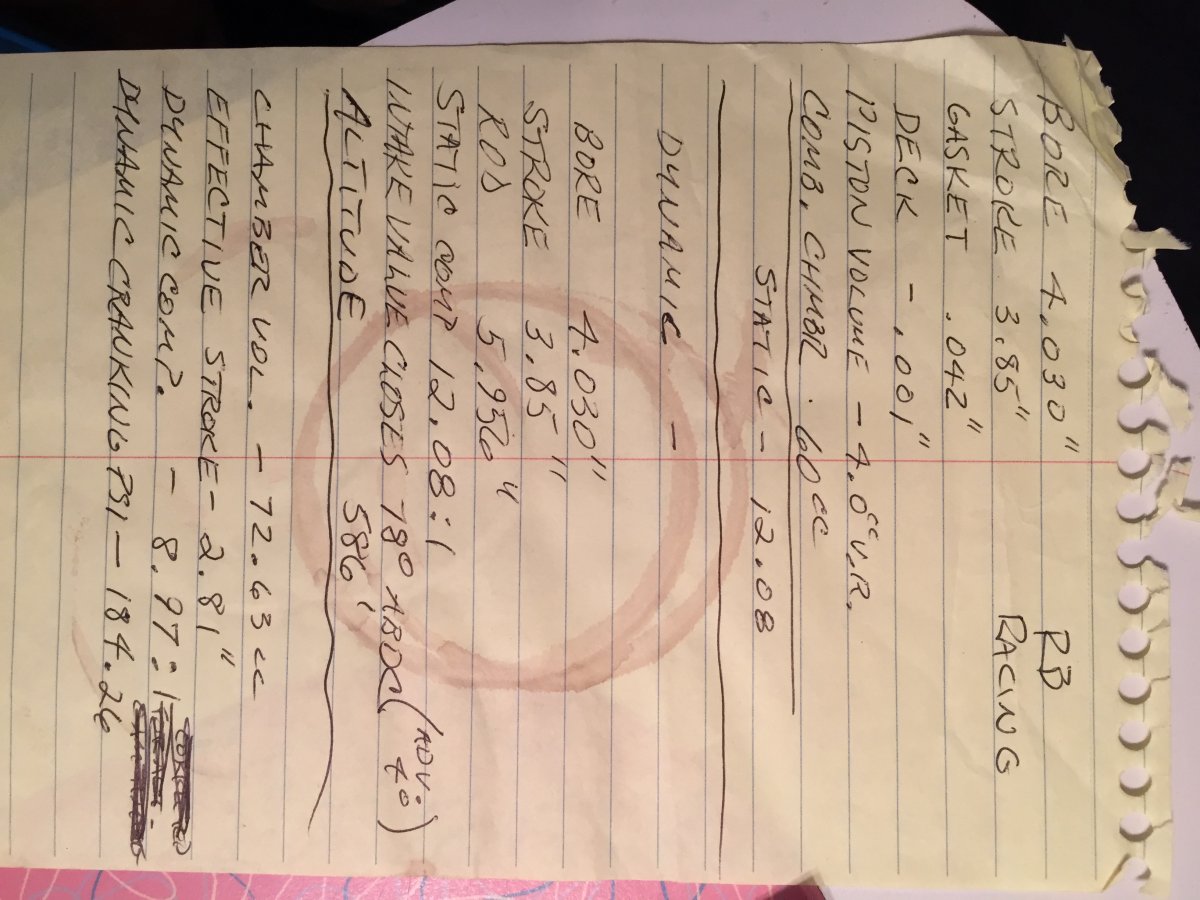 BORE 4.030" RB
STROKE 3.85" RACING
GASKET .042"
DECK - .001"
PISTON VOLUME - 4.0cc V.R.
COMB. CHMBR. 60cc
STATIC - 12.08
DYNAMIC -
BORE 4.030"
STROKE 3.85"
ROD 5.956"
STATIC COMP 12.08:1
INTAKE VALVE CLOSES 78° ABDC (ADV. 4°)
ALTITUDE 586'
CHAMBER VOL. - 72.63cc
EFFECTIVE STROKE - 2.81"
DYNAMIC COMP. - 8.97:1
DYNAMIC CRANKING PSI - 184.26